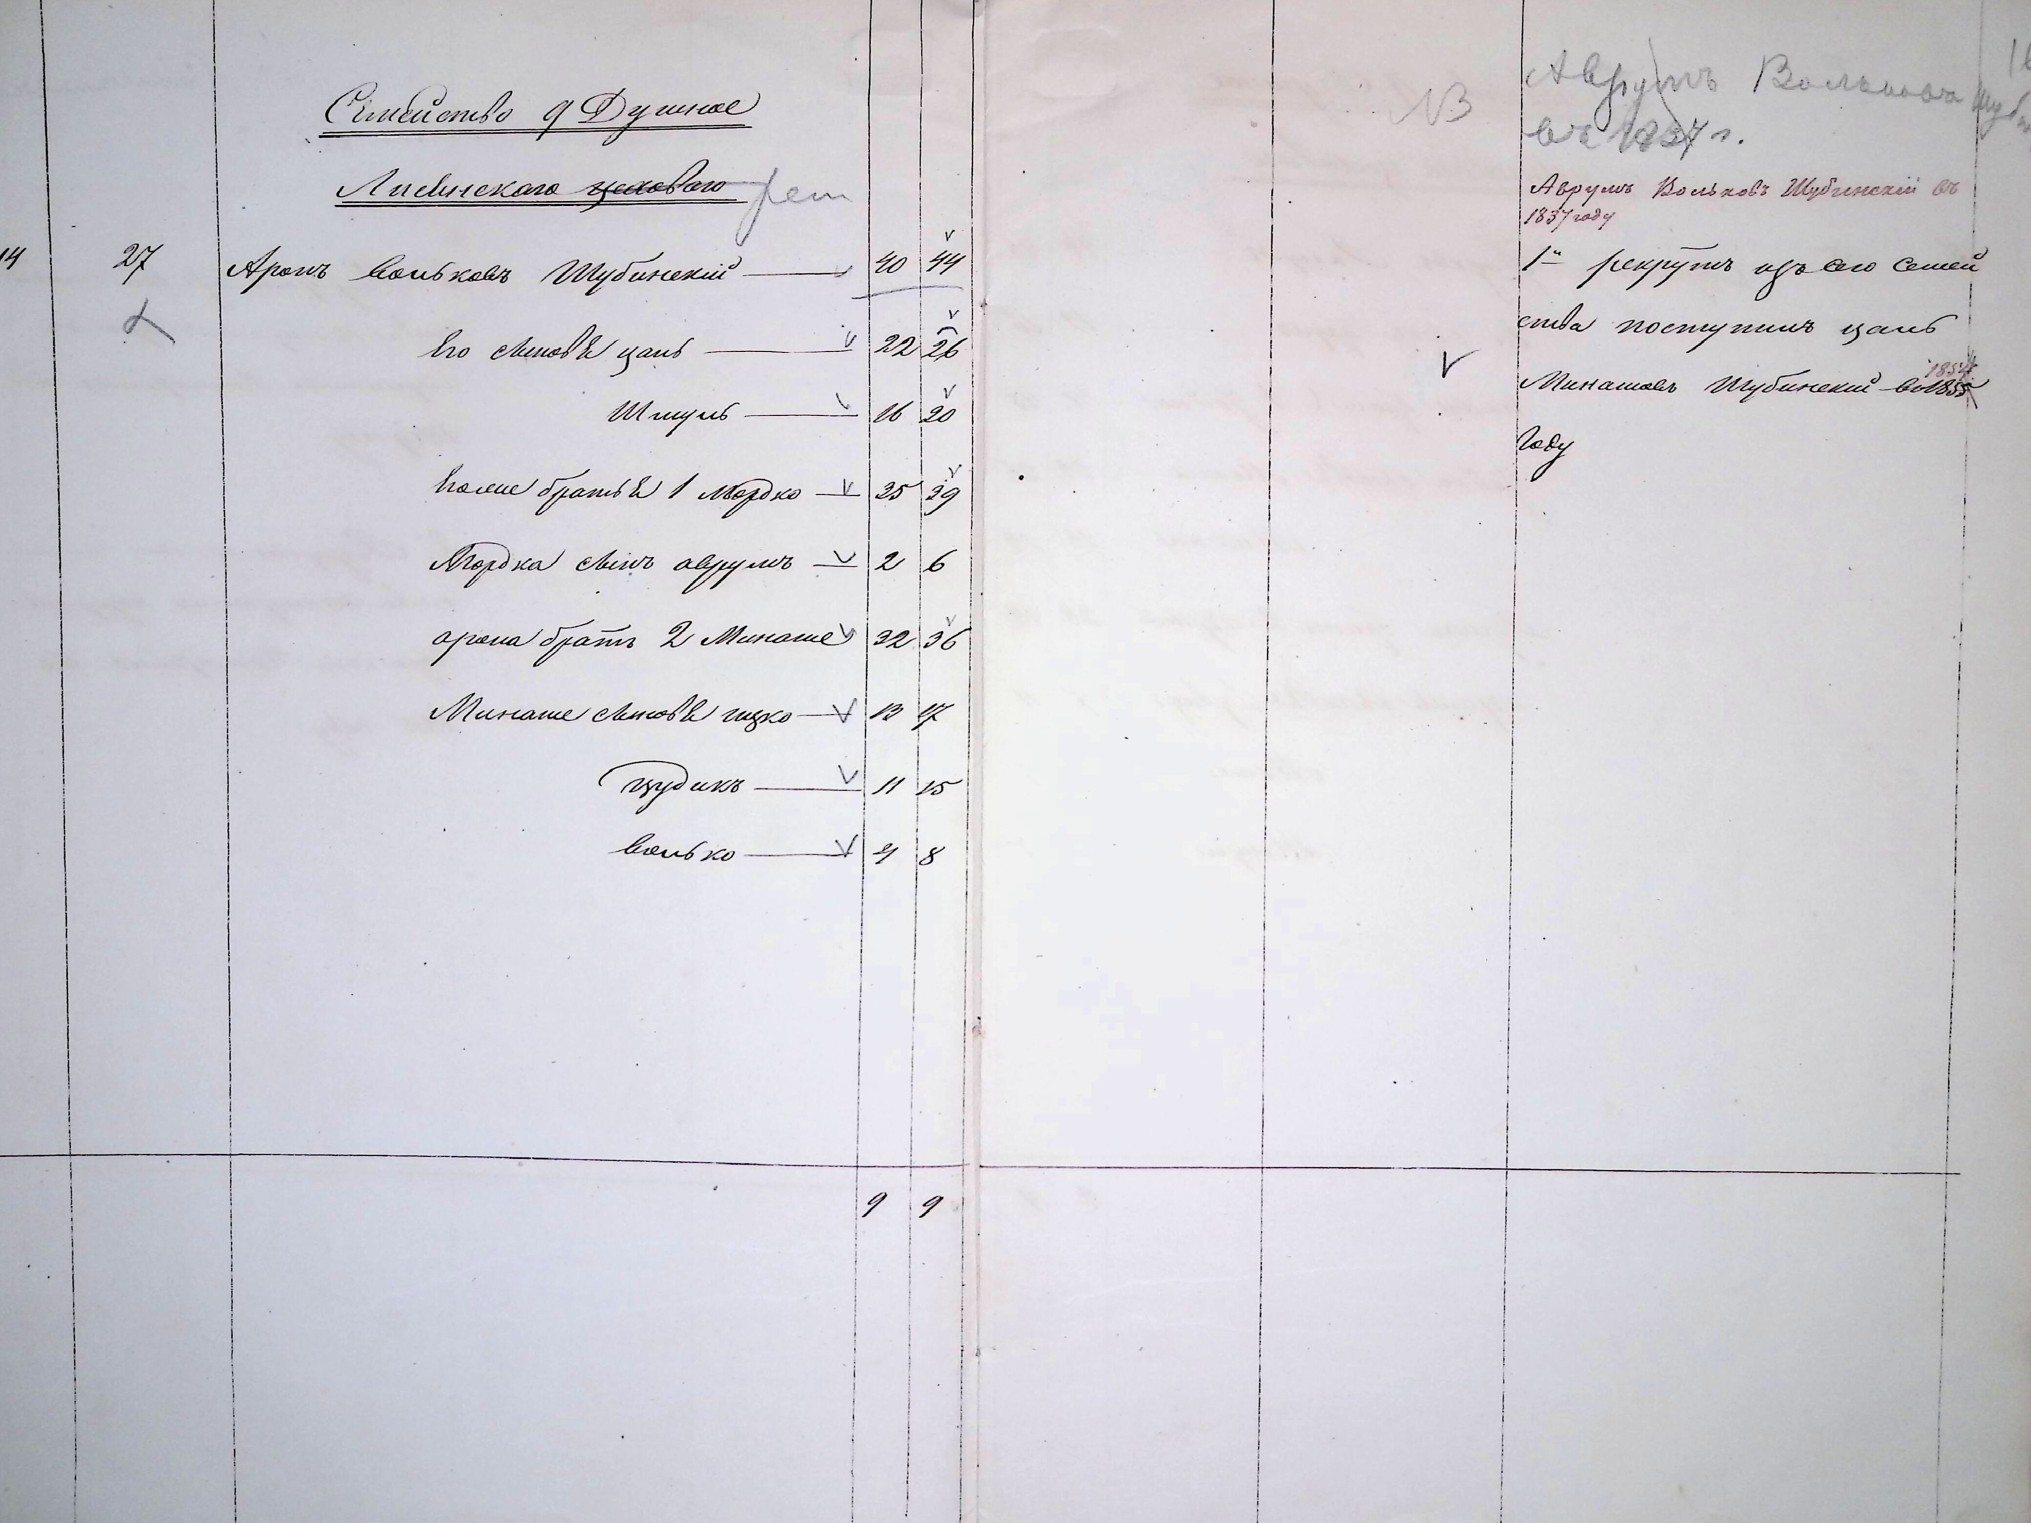 Семейство 9 Душное
Лисинскаго цеховаго рем
14 27 Аронъ вольковъ Шубинскій 40 44
Его сыновья цаль 22 26
Шмуль 16 20
братья 1 мордко 35 39
Мордка сынъ аврумъ 2 6
арона братъ 2 Минаше 32 36
Минаше сыновья ицко 13 17
иудикъ 11 15
волько 4 8
9 9
NB
Аврумъ Волькова Шуб
въ 1837 г.
Аврумъ Вольковъ Шубинскій въ
1837 году
1й рекрутъ изъ сего семей
ства поступилъ цаль
Минашовъ Шубинскій в 1855 1854
году